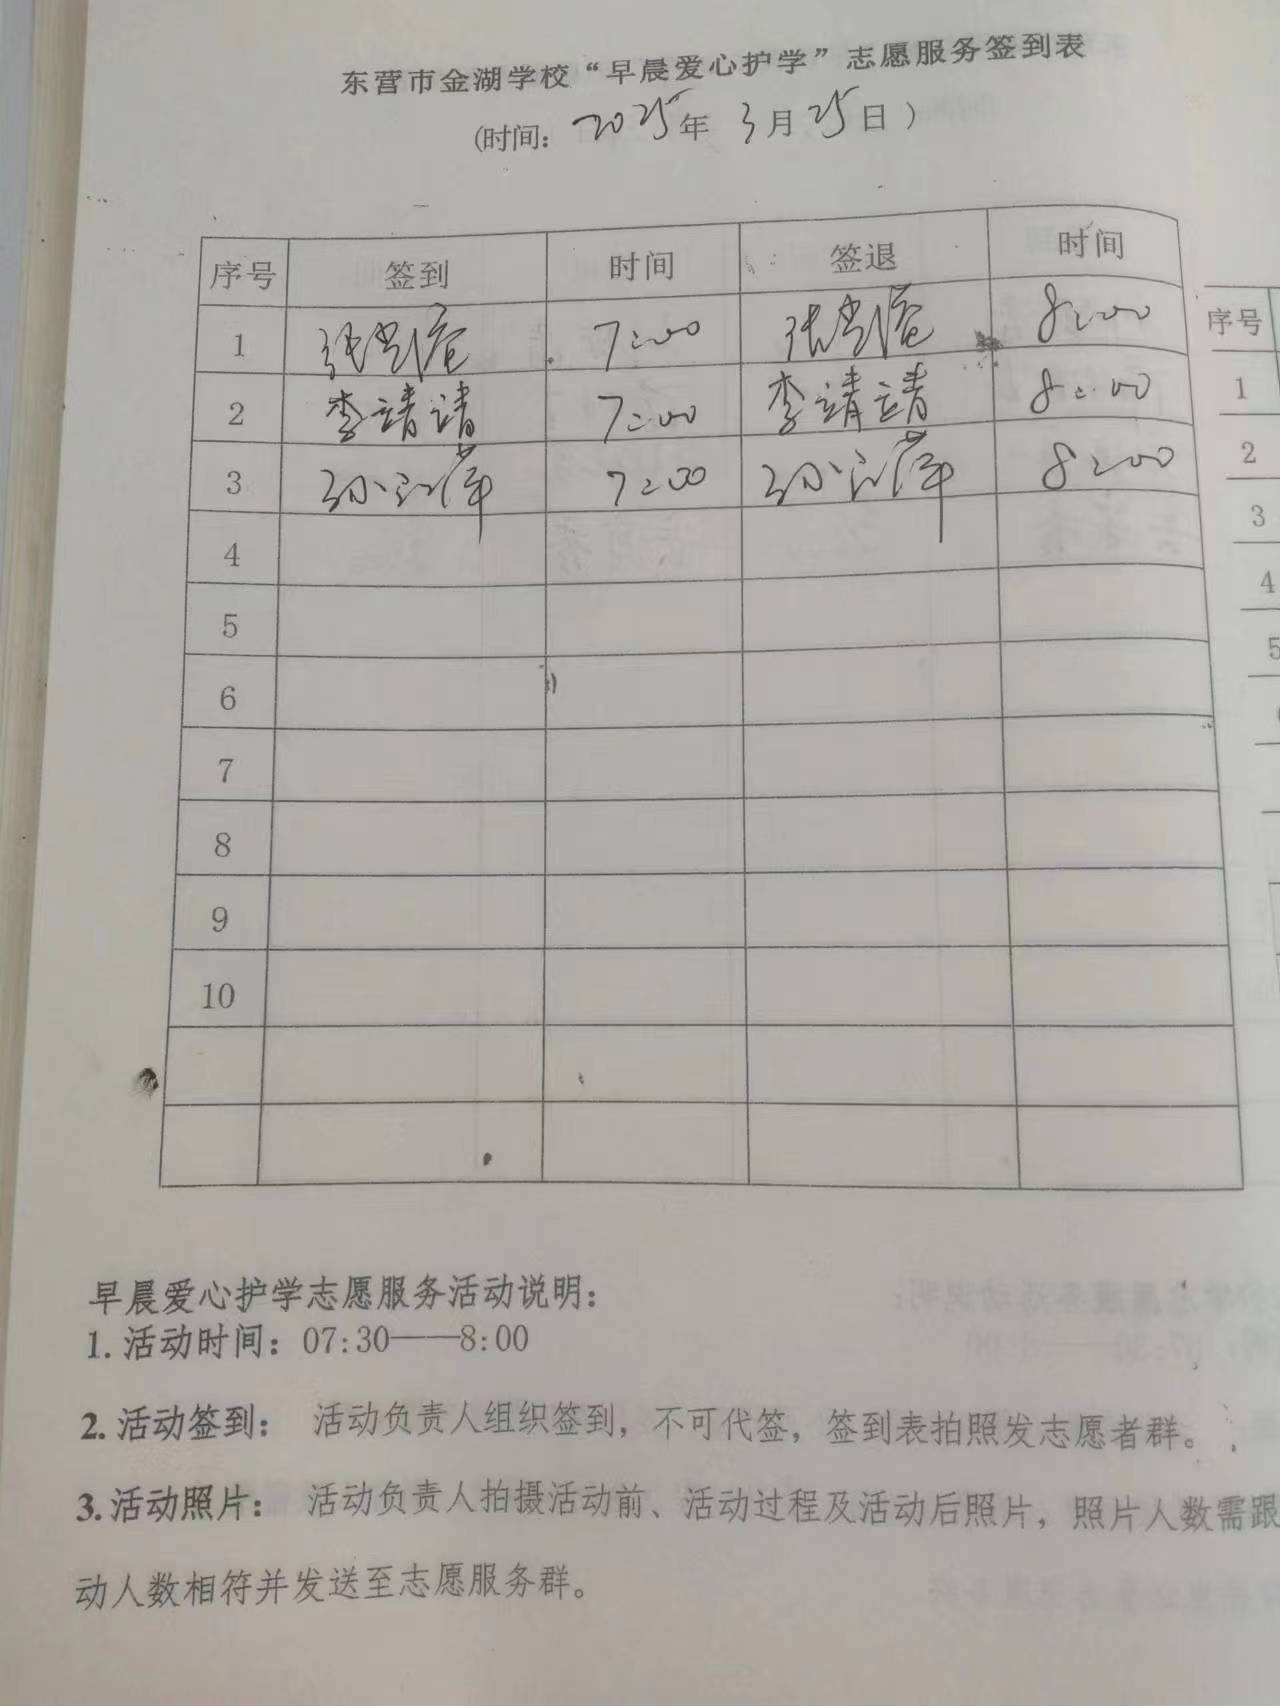 东营市金湖学校“早晨爱心护学”志愿服务签到表
(时间: 2025年 3月 25日 )
序号 签到 时间 签退 时间
1 张 7:00 张 8:00
2 李靖靖 7:00 李靖靖 8:00
3 孙江萍 7:00 孙江萍 8:00
4
5
6
7
8
9
10
早晨爱心护学志愿服务活动说明:
1. 活动时间: 07:30——8:00
2. 活动签到: 活动负责人组织签到, 不可代签, 签到表拍照发志愿者群。
3. 活动照片: 活动负责人拍摄活动前、活动过程及活动后照片, 照片人数需跟
动人数相符并发送至志愿服务群。
序号
1
2
3
4
5